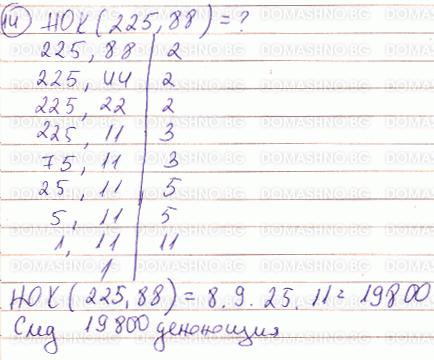 14 НОК (225, 88) = ?
225, 88 | 2
225, 44 | 2
225, 22 | 2
225, 11 | 3
75, 11 | 3
25, 11 | 5
5, 11 | 5
1, 11 | 11
1
НОК (225, 88) = 8.9.25.11 = 19800
След 19800 денонощия